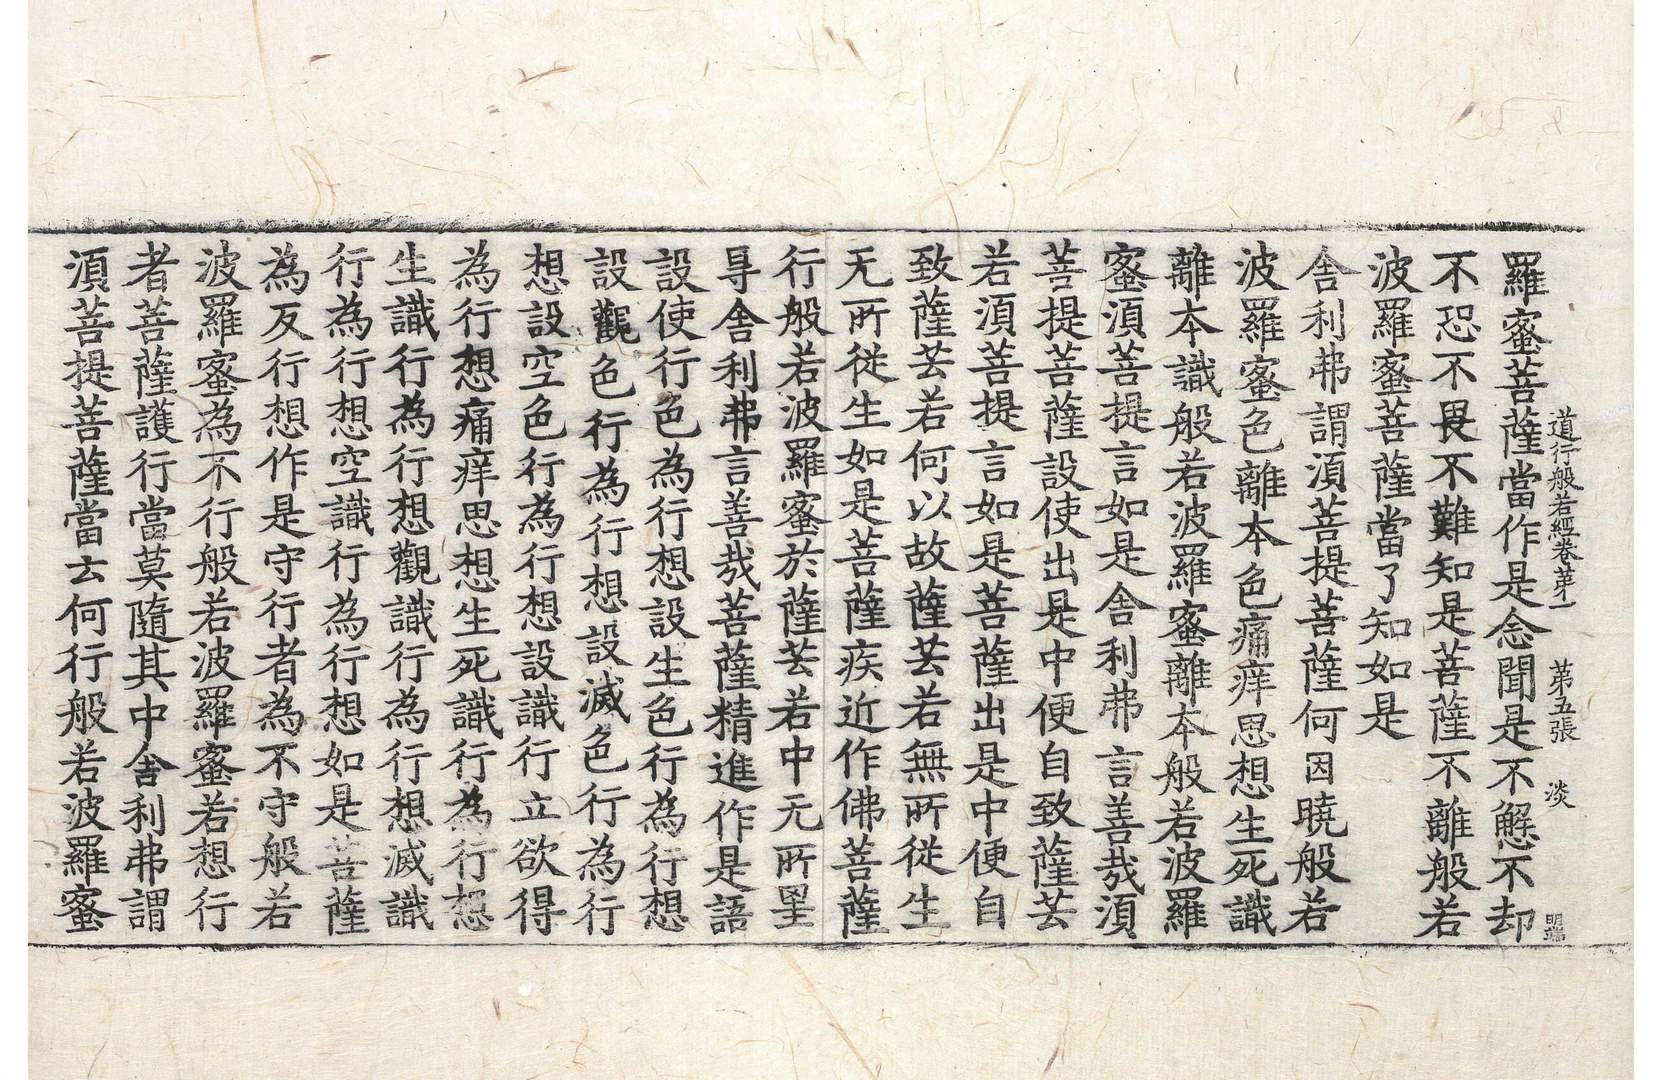 道行般若經卷苐一　苐五張　淡　明端
羅蜜菩薩當作是念聞是不懈不却
不恐不畏不難知是菩薩不離般若
波羅蜜菩薩當了知如是
舍利弗謂湏菩提菩薩何因曉般若
波羅蜜色離本色痛痒思想生死識
離本識般若波羅蜜離本般若波羅
蜜湏菩提言如是舍利弗言善哉湏
菩提菩薩設使出是中便自致薩芸
若湏菩提言如是菩薩出是中便自
致薩芸若何以故薩芸若無所從生
无所從生如是菩薩疾近作佛菩薩
行般若波羅蜜於薩芸若中无所罣
㝵舍利弗言善哉菩薩精進作是語
設使行色為行想設生色行為行想
設觀色行為行想設滅色行為行
想設空色行為行想設識行立欲得
為行想痛痒思想生死識行為行想
生識行為行想觀識行為行想滅識
行為行想空識行為行想如是菩薩
為反行想作是守行者為不守般若
波羅蜜為不行般若波羅蜜若想行
者菩薩護行當莫隨其中舍利弗謂
湏菩提菩薩當云何行般若波羅蜜